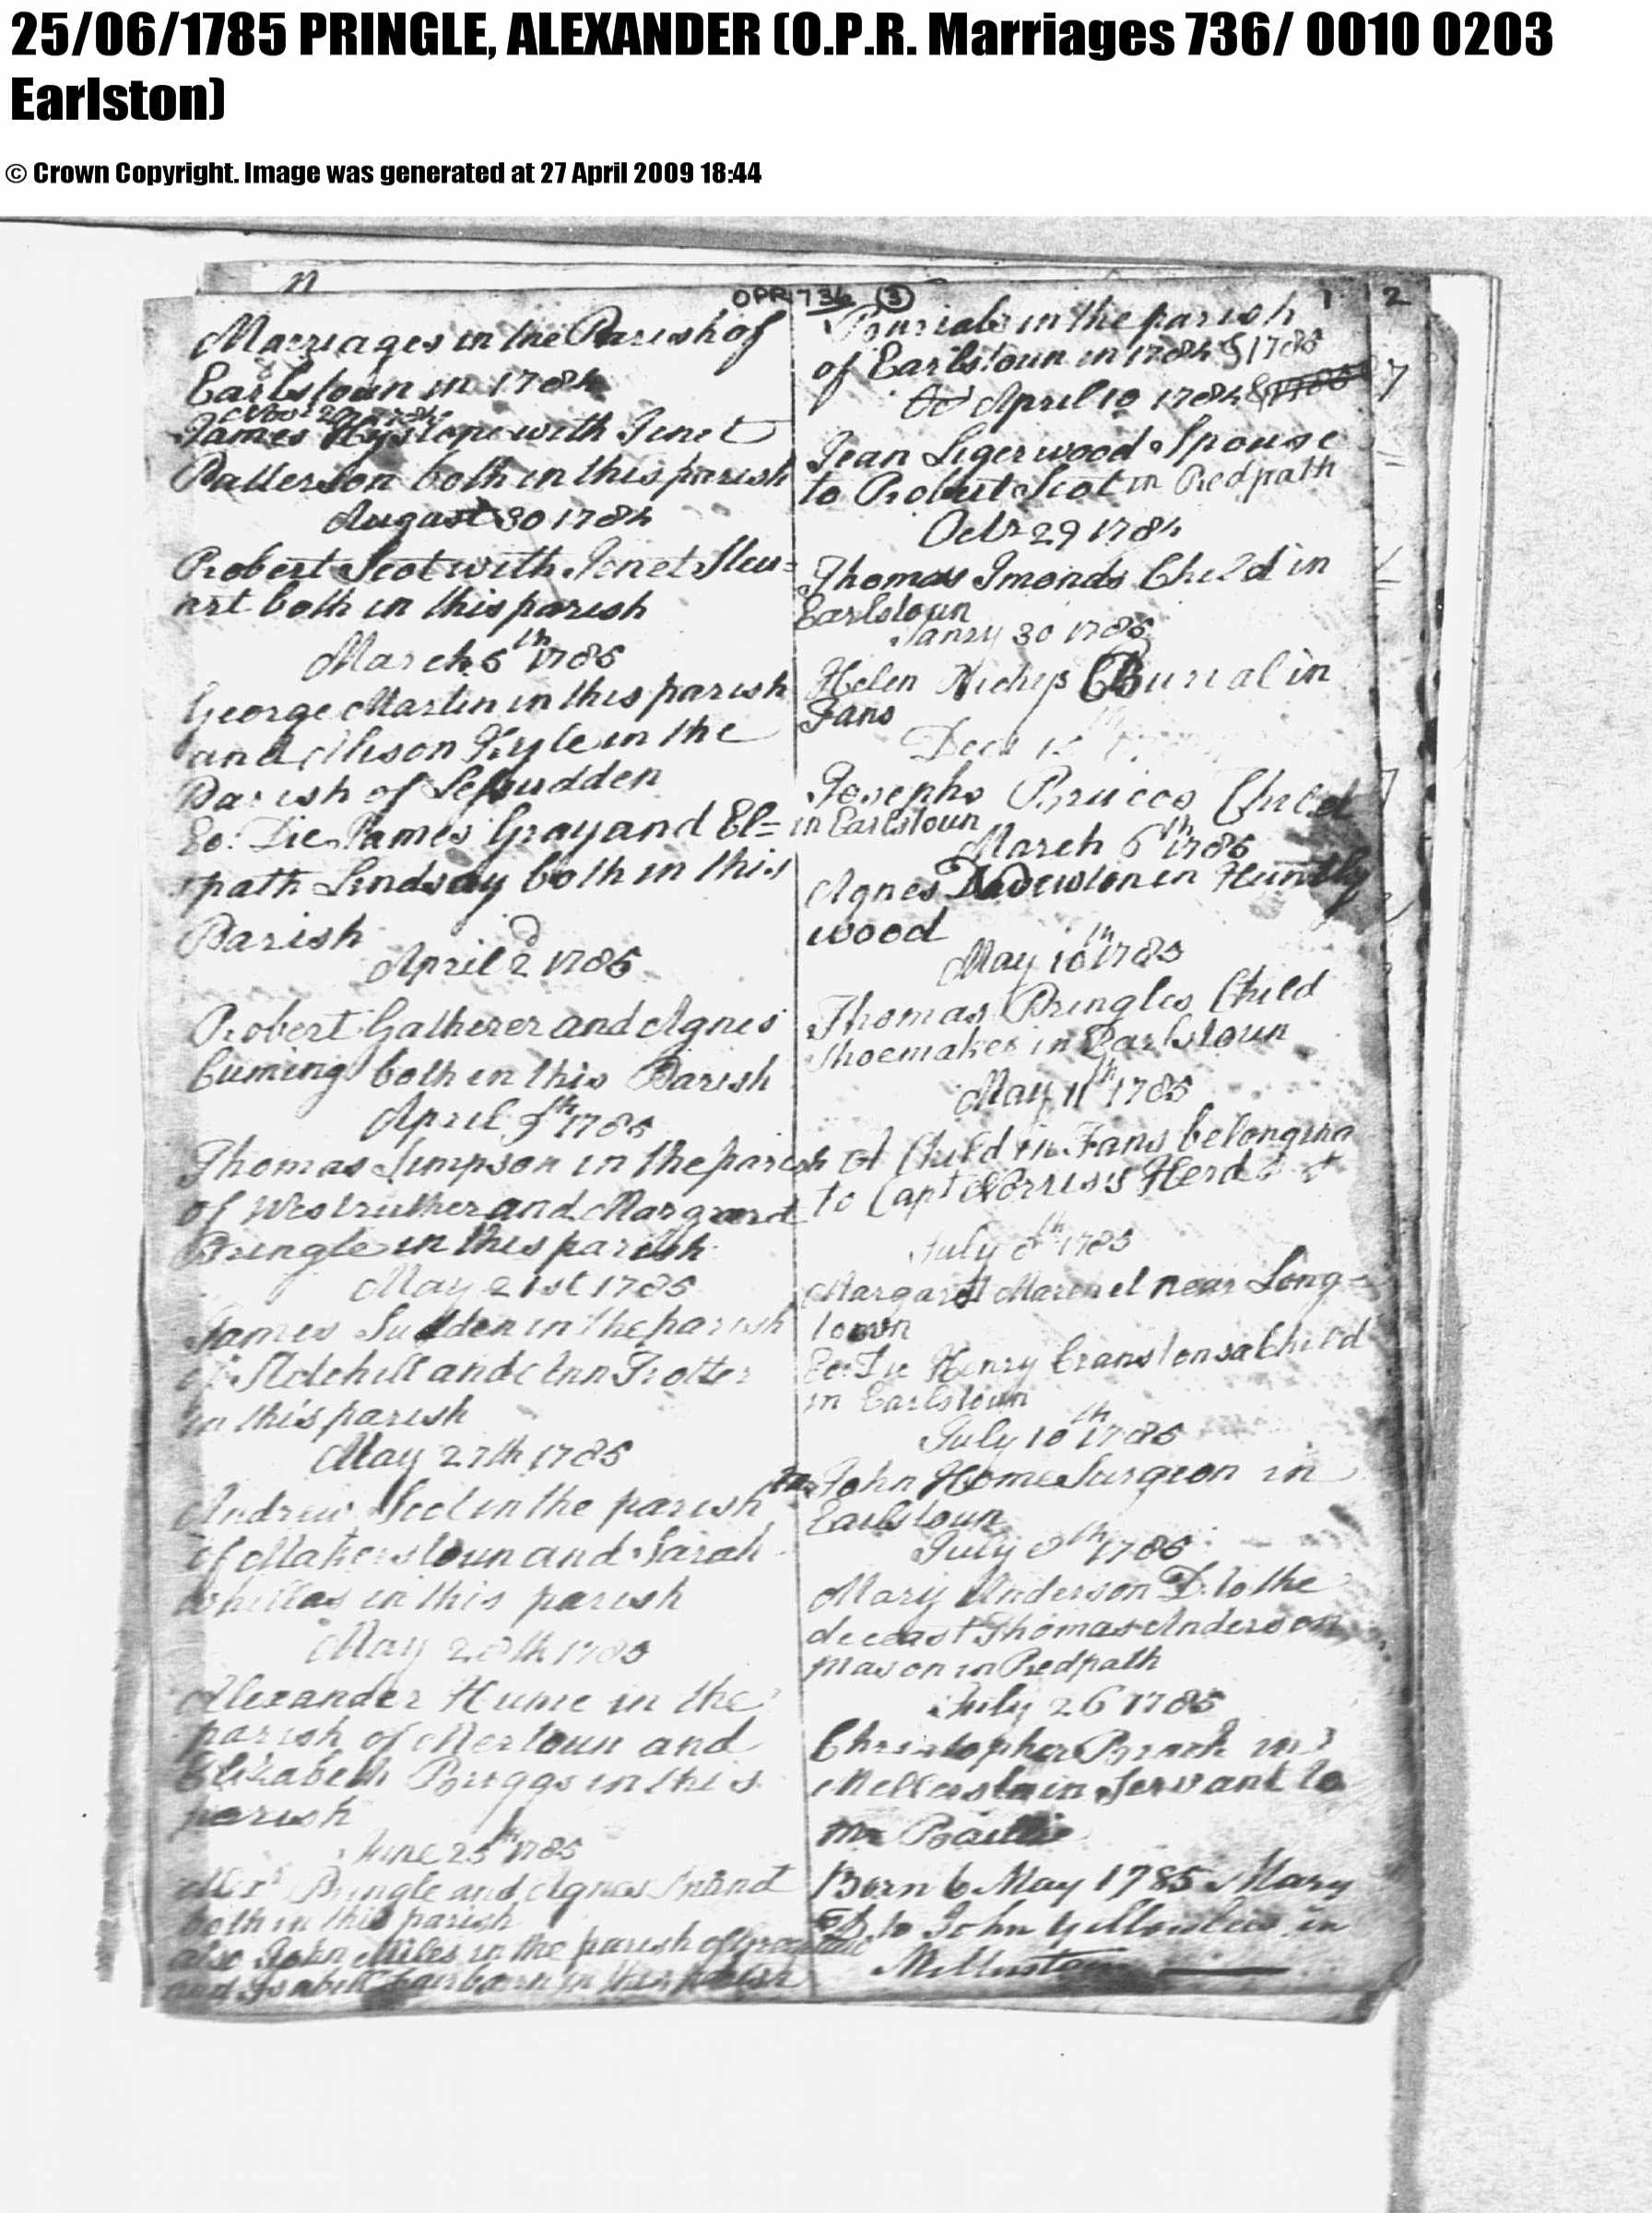 25/06/1785 PRINGLE, ALEXANDER (O.P.R. Marriages 736/ 0010 0203
Earlston)
© Crown Copyright. Image was generated at 27 April 2009 18:44
OPR 736 (3)
1 2
Marriages in the Parish of
Earlstoun in 1784
James Hyslope with Jenet
Patterson both in this parish
August 30 1784
Robert Scot with Jenet Steu=
art both in this parish
March 5th 1785
George Martin in this parish
and Alison Kyle in the
Parish of Lessudden
Eo: Die James Gray and El=
spath Lindsay both in this
Parish
April 2d 1785
Robert Gatherer and Agnes
Cuming both in this Parish
April 9th 1785
Thomas Simpson in the parish
of Westruther and Margaret
Pringle in this parish
May 21st 1785
James Sudden in the parish
of Stitchill and Ann Trotter
in this parish
May 27th 1785
Andrew Scot in the parish
of Makerstoun and Sarah
Whillas in this parish
May 28th 1785
Alexander Hume in the
parish of Mertoun and
Elizabeth Briggs in this
parish
June 25th 1785
Alexr Pringle and Agnes
both in this parish
also John Miles in the parish of
and Isabell Fairbairn in this parish
Burials in the parish
of Earlstoun in 1784 & 1785
April 10 1784
Jean Ligerwood Spouse
to Robert Scot in Redpath
Octr 29 1784
Thomas Imonds Child in
Earlstoun
Janry 30 1785
Helen Burial in
Fans
Decr
Josephs Bruces Child
in Earlstoun
March 6th 1785
Agnes in Huntly
wood
May 10th 1785
Thomas Pringles Child
Shoemaker in Earlstoun
May 11th 1785
A Child in Fans belonging
to Capt Norriss Herd
July 8th 1785
Margaret near Long=
town
Eo: Die Henry Cranstons a Child
in Earlstoun
July 10th 1785
Mr John Home Surgeon in
Earlstoun
July 1785
Mary Anderson D. to the
deceast Thomas Anderson
Mason in Redpath
July 26 1785
Christopher Brack in
Mellerstain Servant to
Mr Baillie
Born 6 May 1785 Mary
D. to John in
Mellerstain